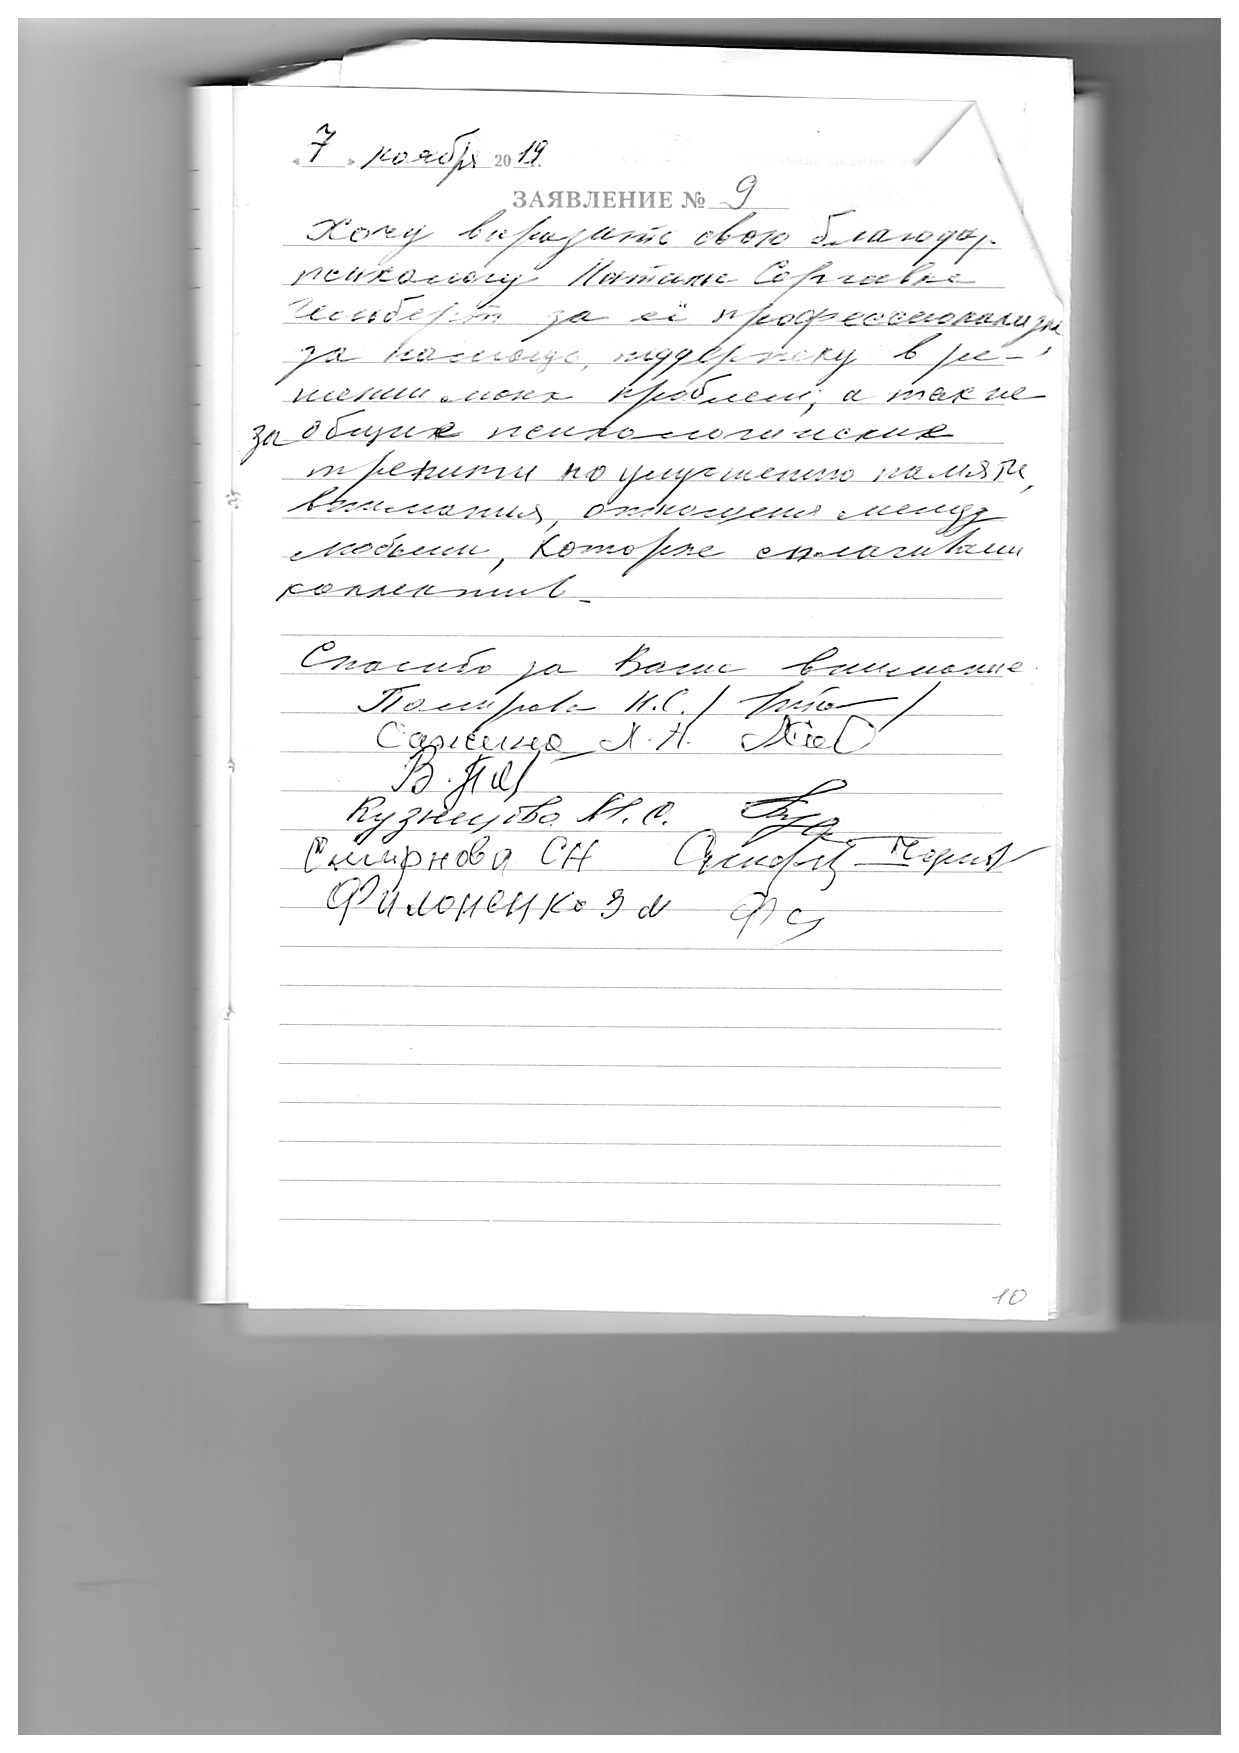 « 7 » ноября 2019.
ЗАЯВЛЕНИЕ № 9
Хочу выразить свою благодар.
психологу Наталье Сергеевне
за её профессионализм,
за помощь, поддержку в ре-
шении моих проблем, а также
за общие психологические
тренинги по улучшению памяти,
внимания, отношения между
людьми, которые сплачивали
коллектив.
Спасибо за Ваше внимание.
Н.С. /
Сажина Л.Н.
В.
Кузнецова М.С.
Смирнова СН
Филоненко З М
10